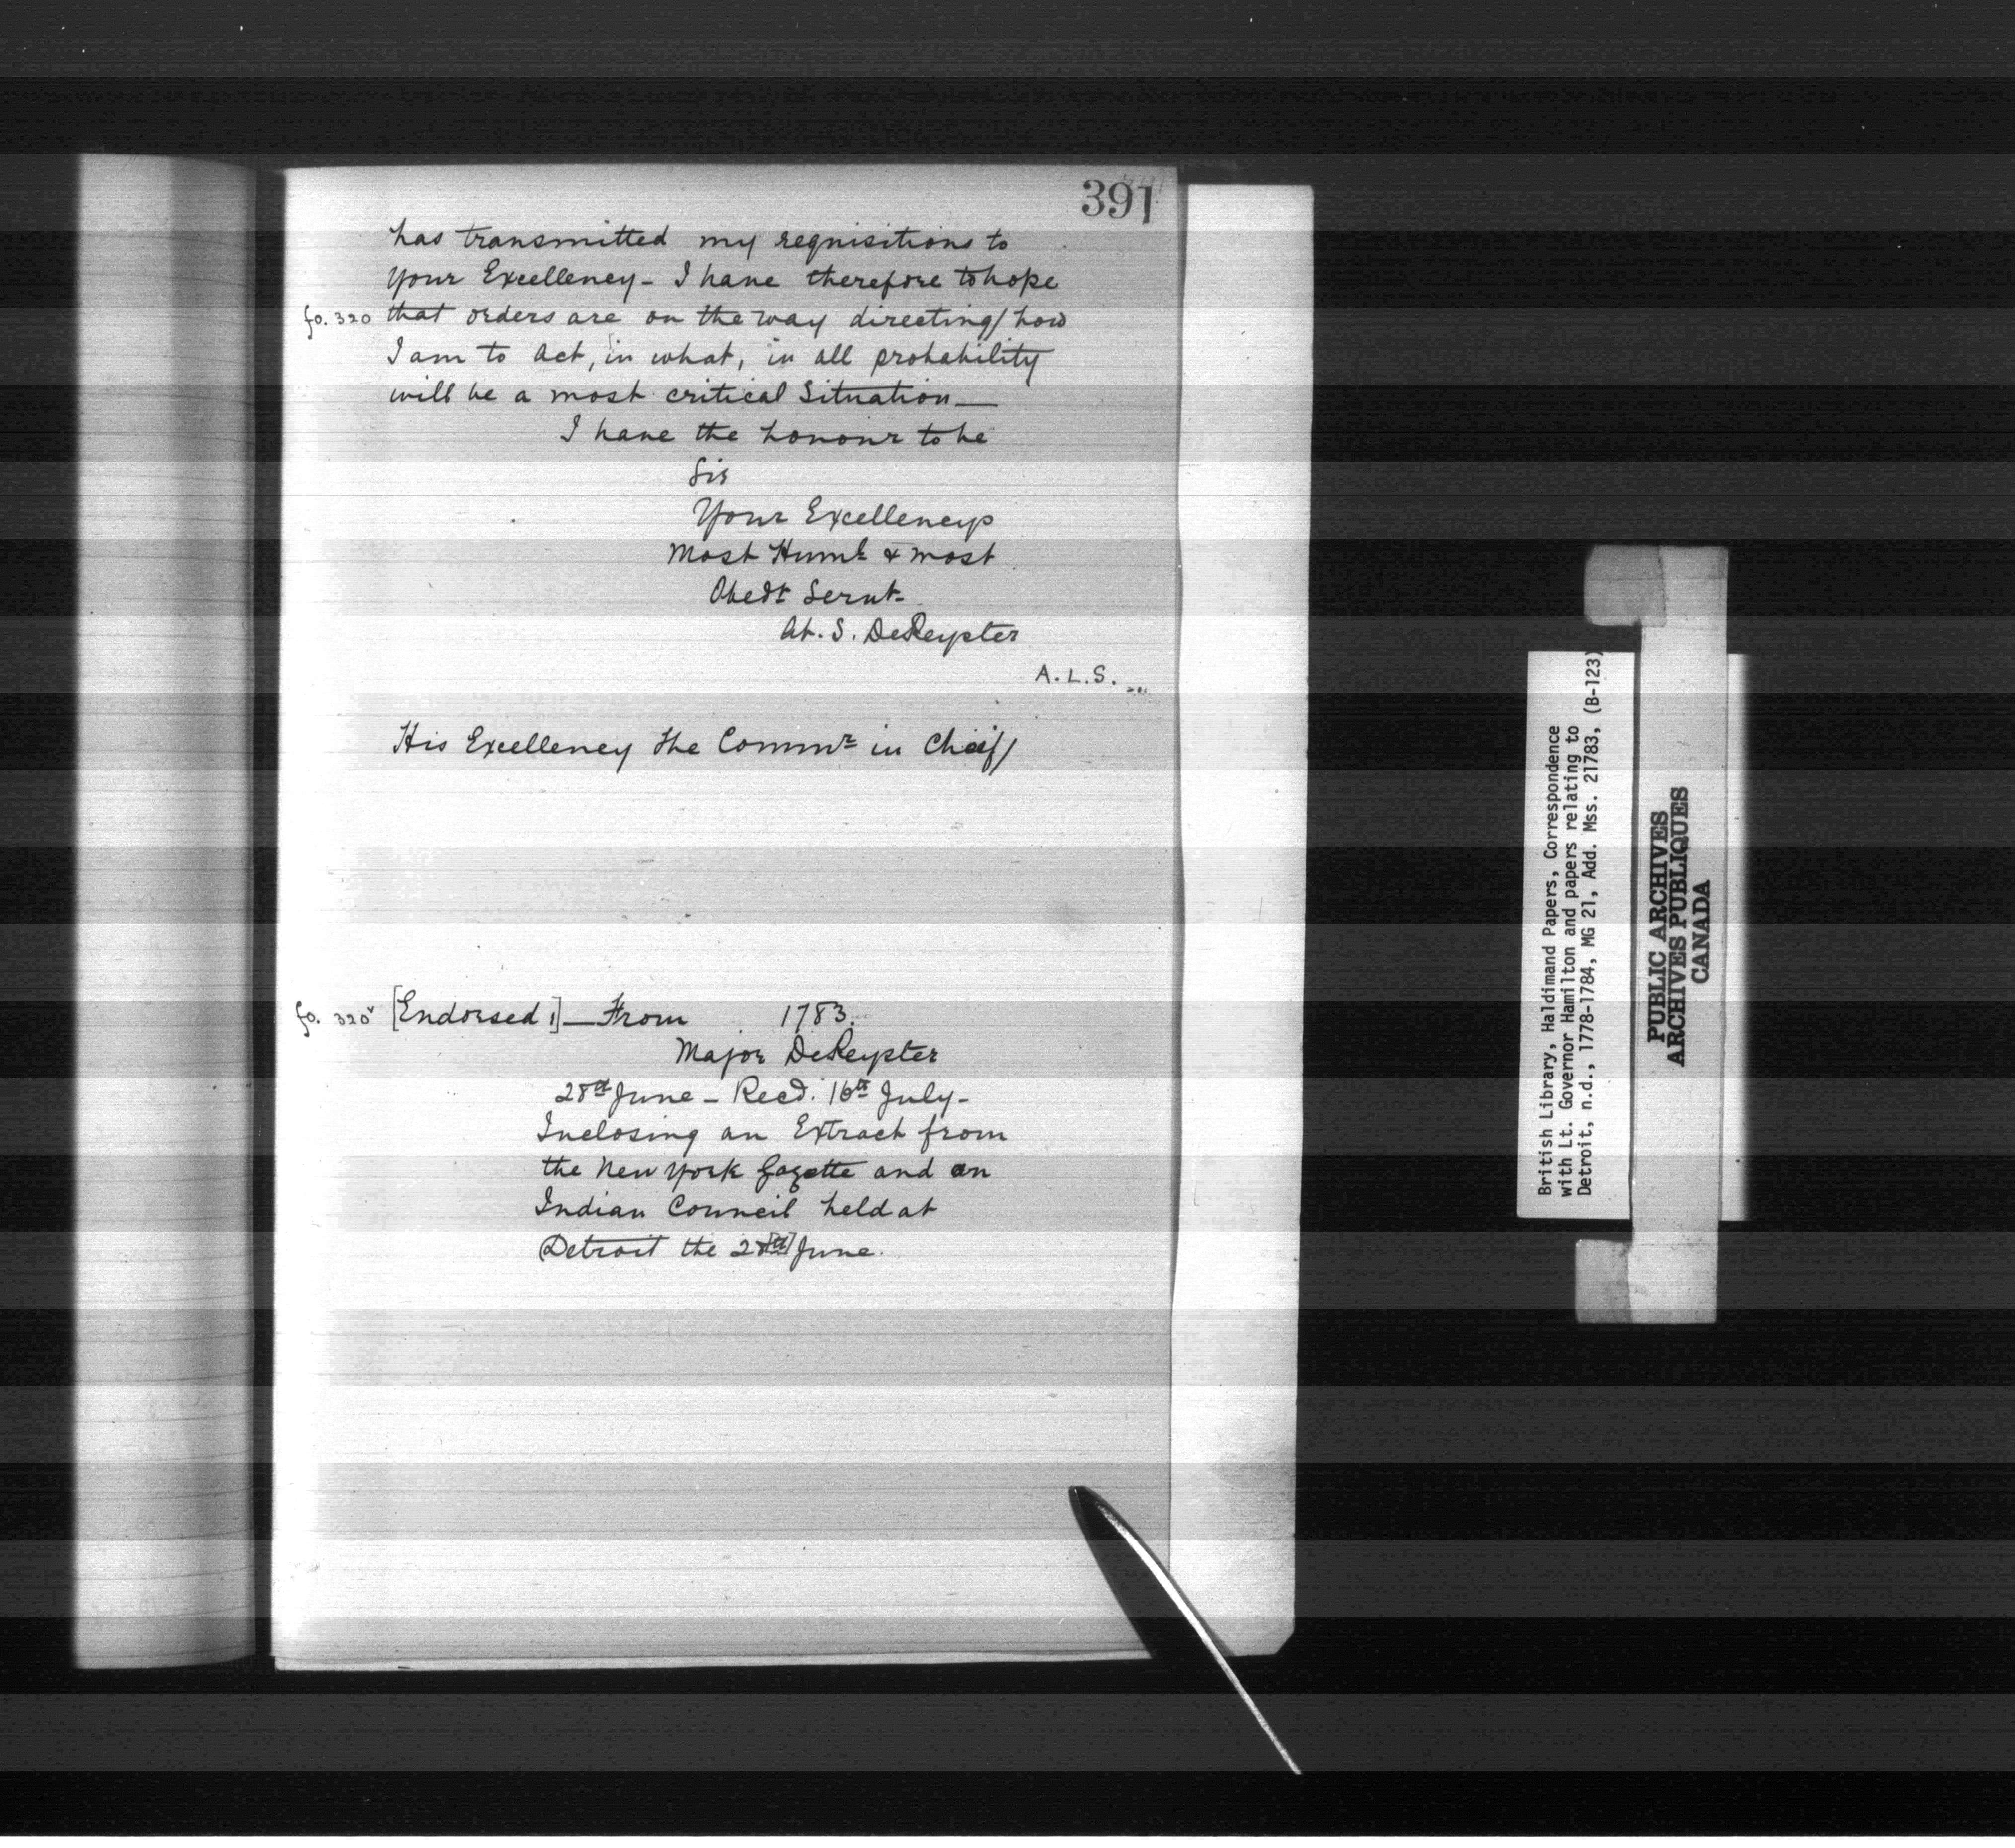 391
has transmitted my requisitions to
Your Excellency - I have therefore to hope
fo. 320 that orders are on the way directing/how
I am to act, in what, in all probability
will be a most critical Situation—
I have the honour to be
Sir
Your Excellencys
Most Humle & most
Obedt Servt-
At. S. DePeyster
A.L.S.
His Excellency the Commr in Chief/
fo. 320v [Endorsed:] — From 1783.
Major DePeyster
28th June - Recd. 16th July-
Inclosing an Extract from
the New York Gazette and an
Indian Council held at
Detroit the 28[th] June.
British Library, Haldimand Papers, Correspondence
with Lt. Governor Hamilton and papers relating to
Detroit, n.d., 1778-1784, MG 21, Add. Mss. 21783, (B-123)
PUBLIC ARCHIVES
ARCHIVES PUBLIQUES
CANADA